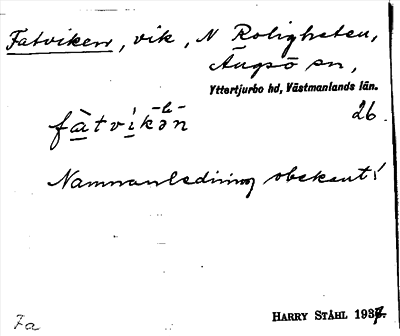 Fatviken, vik, N Roligheten,
Ängsö sn,
Yttertjurbo hd, Västmanlands län.
26.
fàtvìkən
Namnanledning obekant!
Fa
HARRY STÅHL 1937.